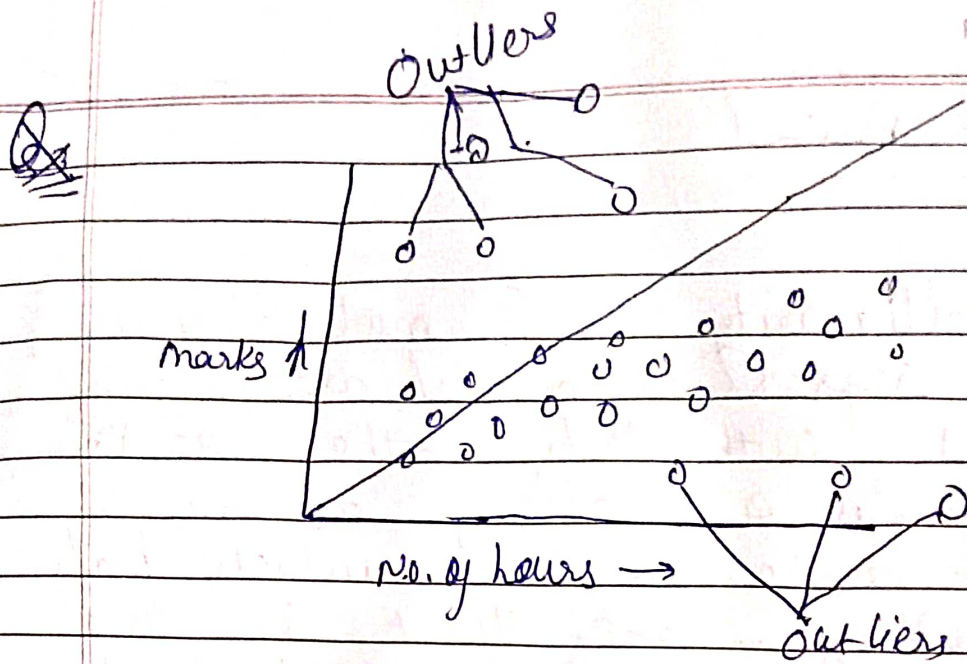 Outliers
Q
marks ↑
No. of hours →
outliers